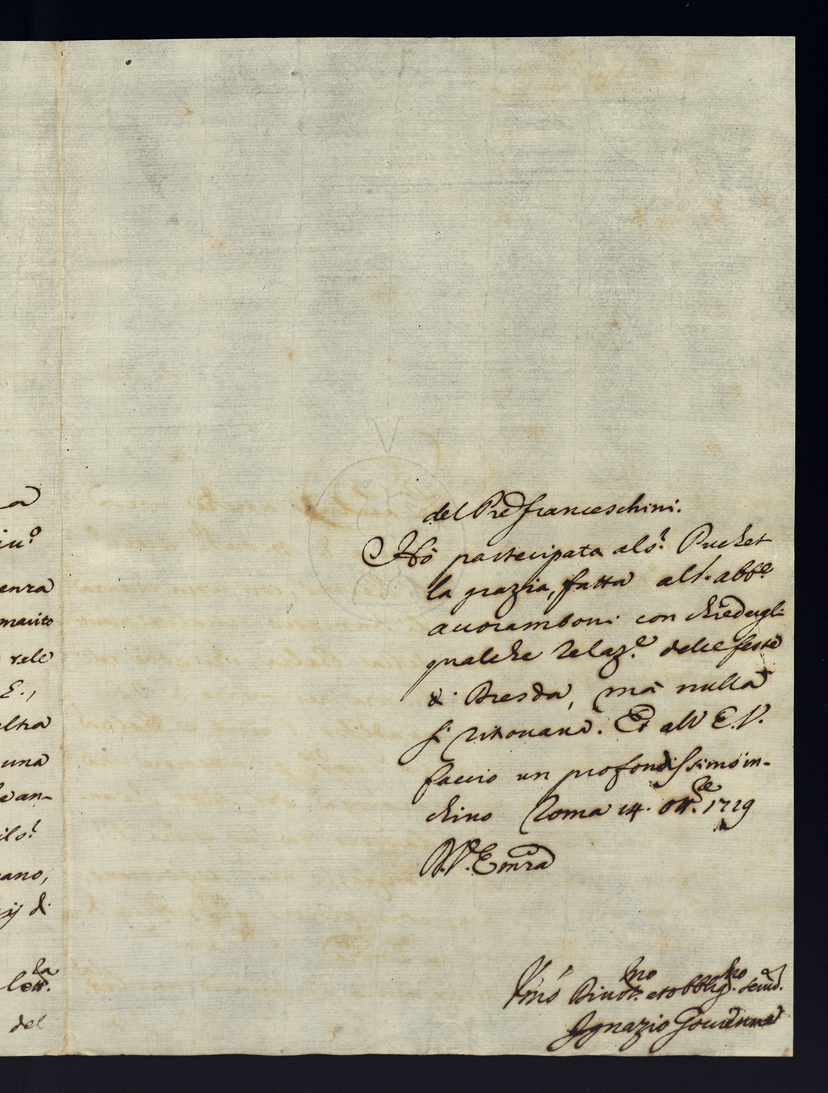 a
iu.º
enza
marito
rele
E.,
altra
una
e an-
il s.r
ano,
ij di
lett.ra
del
del Pre Franceschini.
Hò partecipata al s.r Pucket
la grazia, fatta all' abb.e
auoramboni con chiedergli
qualche relaz.e delle feste
di Dresda, mà nulla
si ritrovava. Et all' E.V.
faccio un profondissimo in-
chino Roma 14. Ott.bre 1719
D. V. Emza
Vmo Divot.mo et obblig.mo Seru.
Ignazio